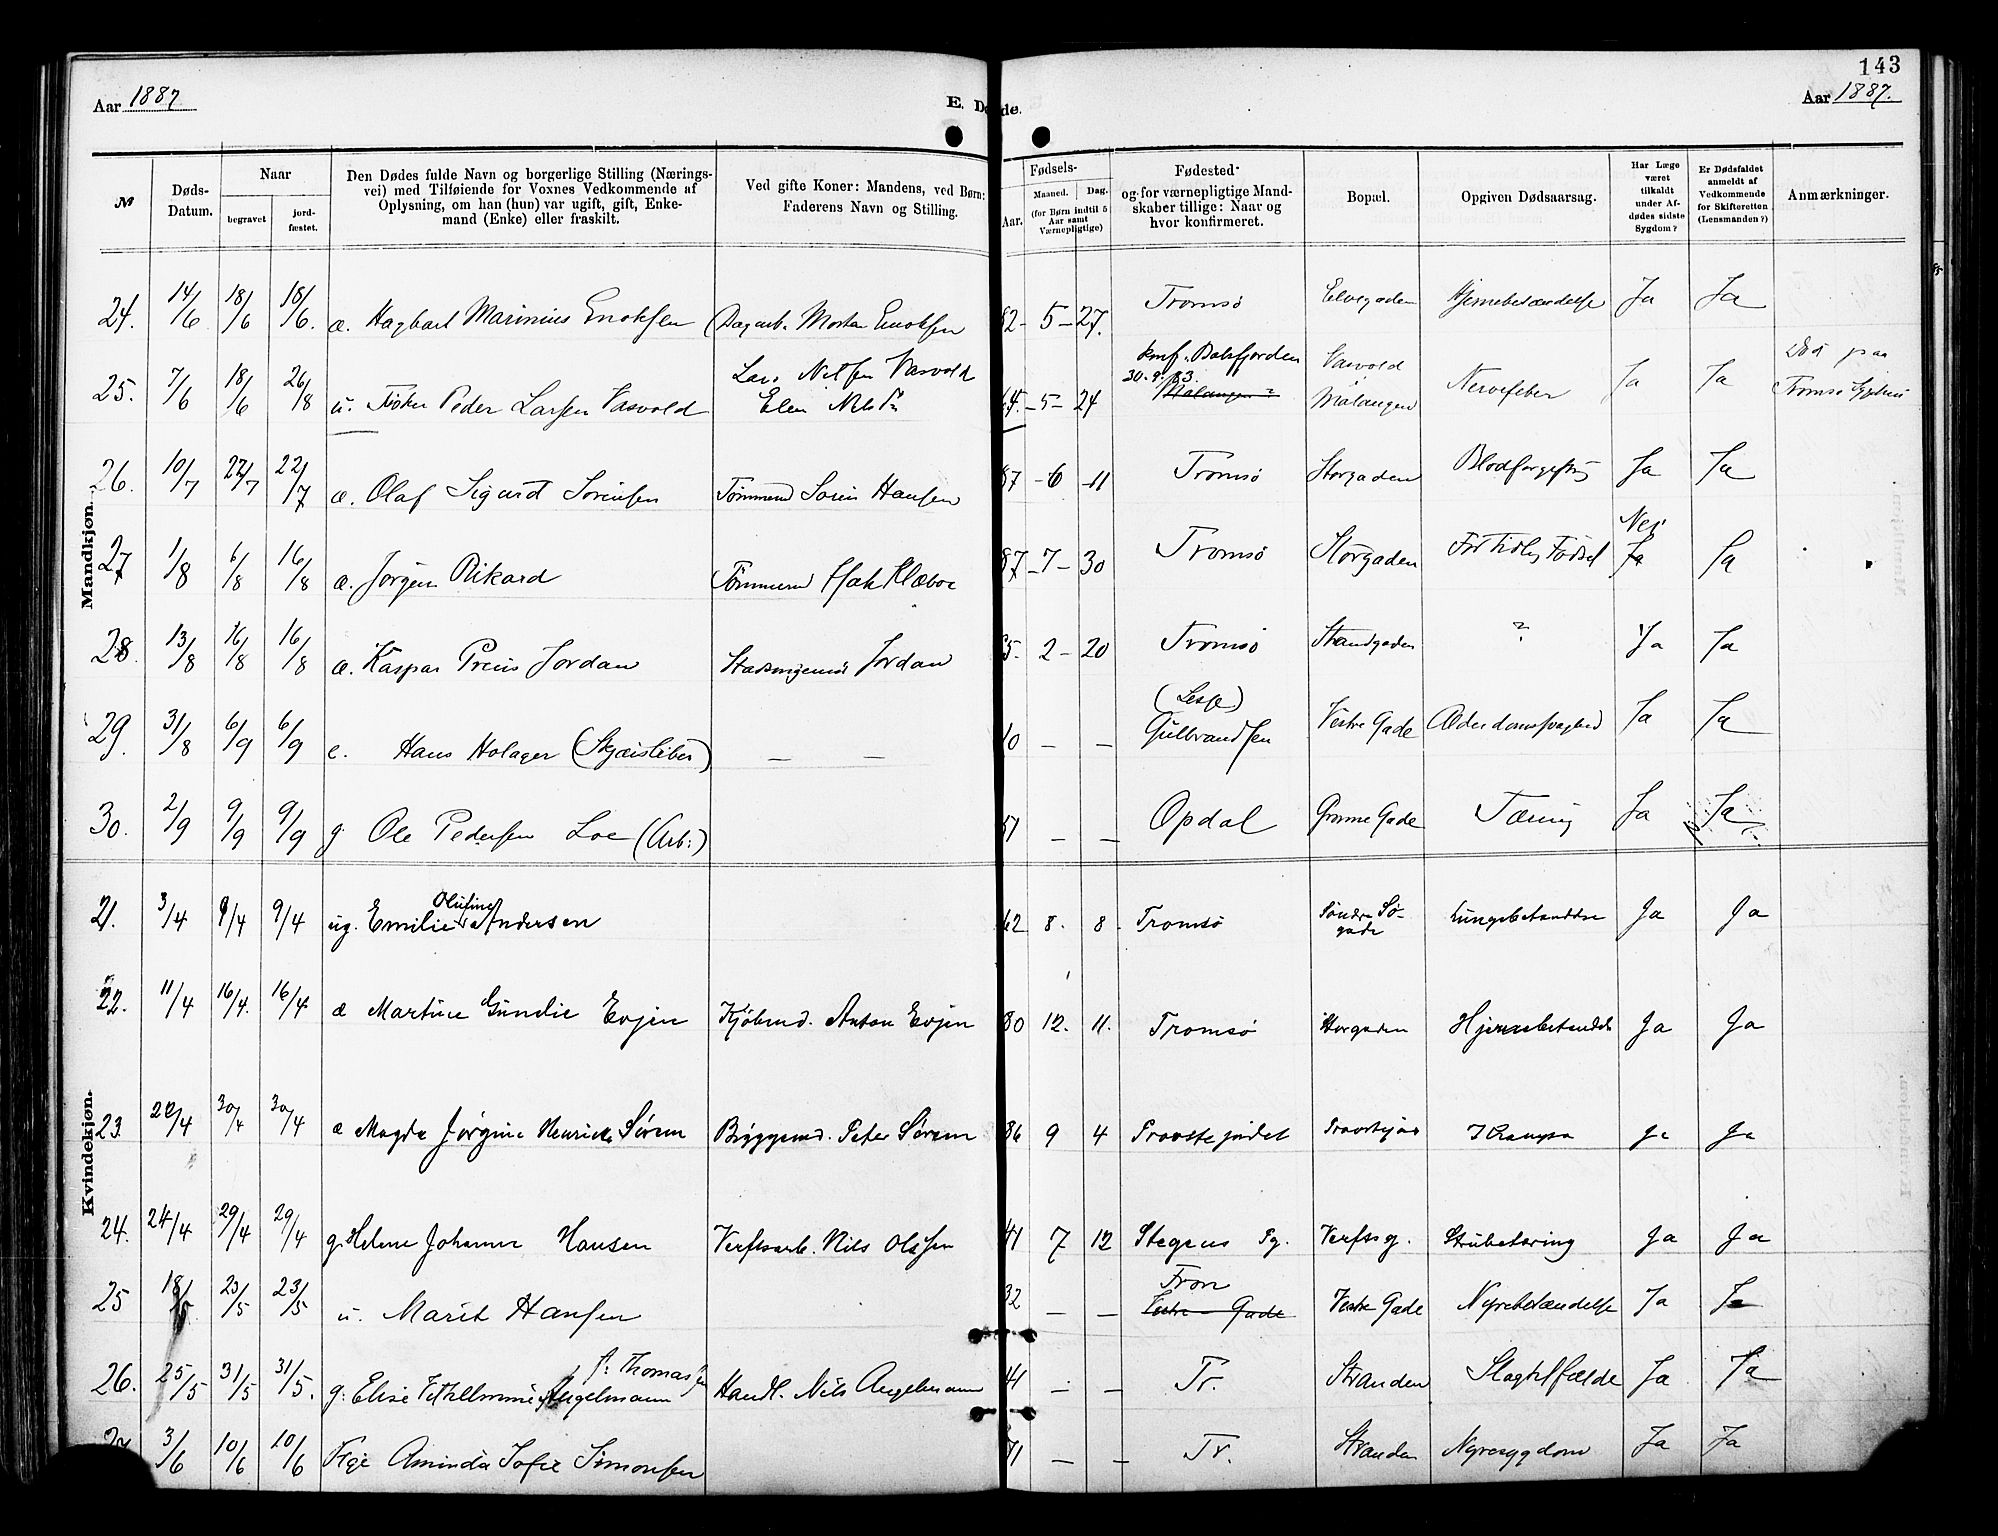 143
Aar 1887
E. Døde.
Aar 1887.
№
Døds-Datum.
Naar
begravet
jord-fæstet.
Den Dødes fulde Navn og borgerlige Stilling (Nærings-
vei) med Tilføiende for Voxnes Vedkommende af
Oplysning, om han (hun) var ugift, gift, Enke-
mand (Enke) eller fraskilt.
Ved gifte Koner: Mandens, ved Børn:
Faderens Navn og Stilling.
Fødsels-
Aar.
Maaned.
Dag.
(for Børn indtil 5
Aar samt
Værnepligtige)
Fødested
og for værnepligtige Mand-
skaber tillige: Naar og
hvor konfirmeret.
Bopæl.
Opgiven Dødsaarsag.
Har Læge
været
tilkaldt
under Af-
dødes sidste
Sygdom?
Er Dødsfaldet
anmeldt af
Vedkommende
for Skifteretten
(Lensmanden?)
Anmærkninger.
Mandkjøn.
24. 14/6 18/6 18/6. æ. Hagbart Marinius Enoksen Dagarb. Morten Enoksen 82 - 5 - 27. Tromsø Elvegaden Hjernebetændelse Ja Ja
25. 7/6 18/6 26/8 u. Peder Larsen Vasvold Lars Nilsen Vasvold
Elen 64 - 5 - 24 konf. Balsfjorden
30.9.83.
Malangen? Vasvold
Malangen Nervefeber Ja Ja Død paa
Tromsø Sygehus
26. 10/7 22/7 22/7 æ. Olaf Sigurd Sørensen Tømmermd Søren Hansen 87 - 6 - 11 Tromsø Storgaden Blodforgiftn Ja Ja
27 1/8 6/8 16/8 æ. Jørgen Rikard Tømmermd Isak Klæboe 87 - 7 - 30 Tromsø Storgaden For tidlig Fødsel Nei
Ja Ja
28. 13/8 16/8 16/8 æ. Kaspar Preus Jordan Stadsingeniør Jordan 85. 2 - 20 Tromsø Strandgaden ? Ja Ja
29. 31/8 6/9 6/9 e. Hans Holager (Skjærsliber) — — 10 — — (Lesje)
Gulbrandsen Vestre Gade Alderdomssvaghed Ja Ja
30. 2/9 9/9 9/9 g. Ole Pedersen Loe (Arb:) 51 — — Opdal Grønne Gade Tæring Ja Ja
Kvindekjøn.
21. 3/4 9/4 9/4 ug. Emilie Olufine Andersen 62 8. 8. Tromsø Søndre Sø-
gade Lungebetændelse Ja Ja
22. 11/4 16/4. 16/4 æ Martine Gundie Evjen Kjøbmd. Anton Evjen 80 12. 11. Tromsø Storgaden Hjernebetændels Ja Ja
23 22/4 30/4 30/4 æ Magda Jørgine Henrikke Sørum Bryggemd. Peter Sørum 86 9 4 Provstejordet Provstejor Krampe Ja Ja
24. 24/4 29/4 29/4 g. Helene Johanne Hansen Verftsarb. Nils Olsen 41 7 12 Stegens Pg. Verftsg. Strubetæring Ja Ja
25 18/5 23/5 23/5 u. Marit Hansen 32 — — Fron
Vestre Gade Vestre Gade Nyrebetændelse Ja Ja
26. 25/5 31/5 31/5. g. Elise Vilhelmine Angelmann f: Thomassen Handl. Nils Angelmann 41 — — Tr. Stranden Slagtilfælde Ja Ja
27 3/6 10/6 10/6 Aminda Sofie Simonsen 71 — — Tr. Stranden Nyresygdom Ja Ja